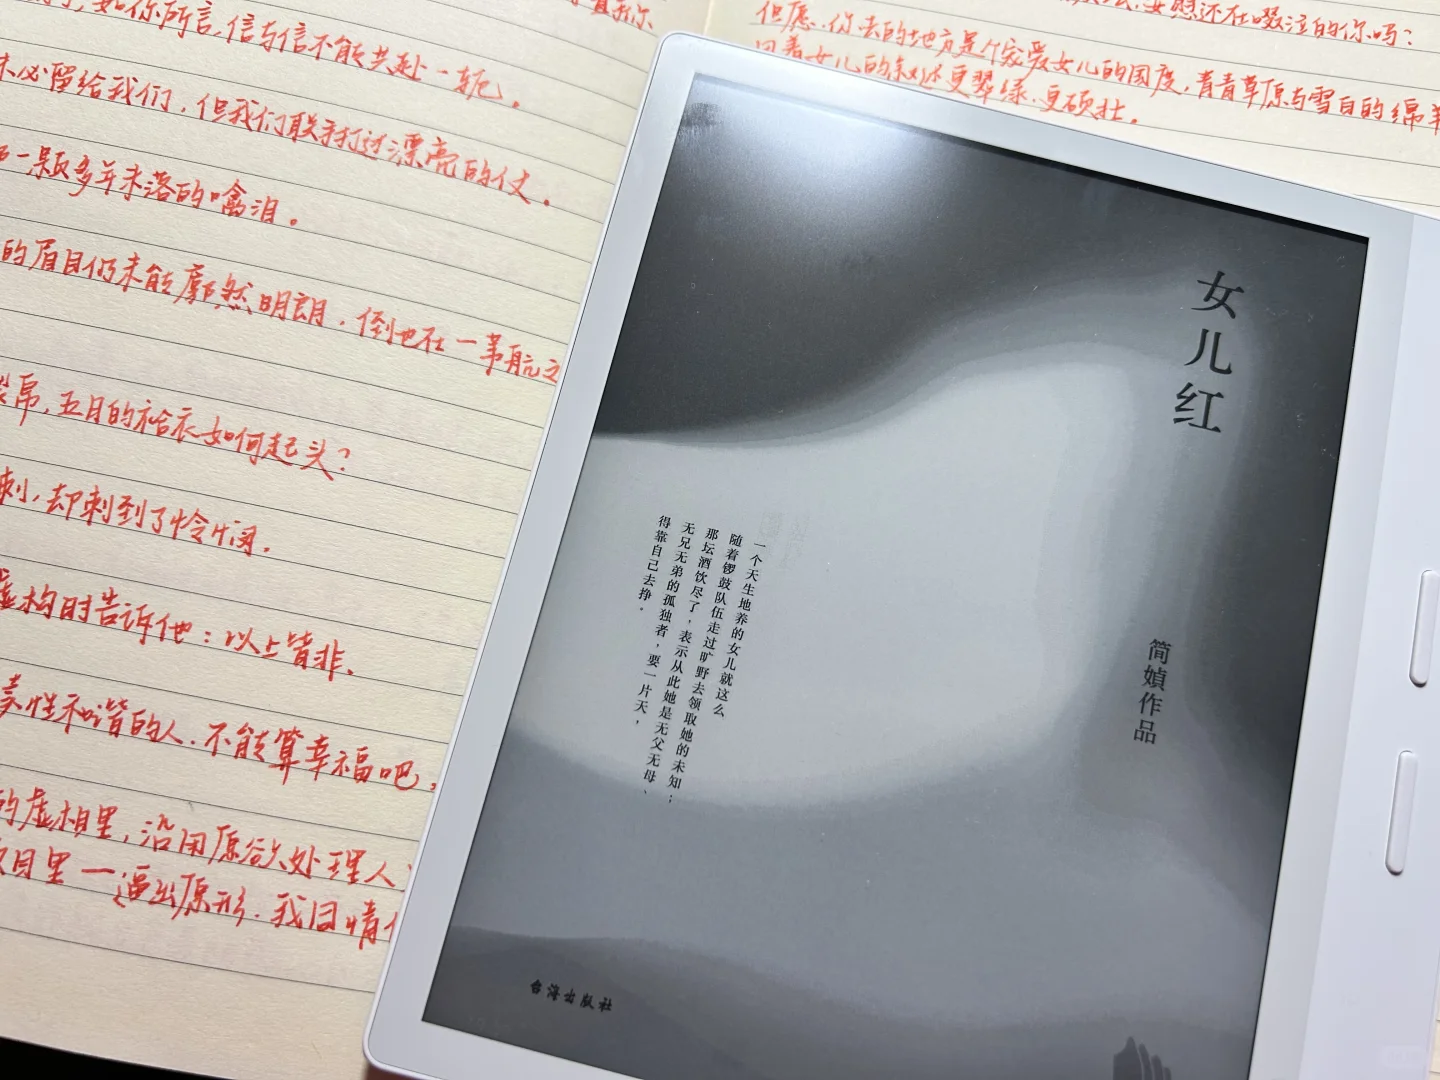 如你所言，信与信不能共赴一轭。
未必留给我们，但我们联手打过漂亮的仗。
一颗多年未落的噙泪。
的眉目仍未能廓然明朗，倒也在一苇航之
帛，五月的袷衣如何起头？
刺，却刺到了怜悯。
虚构时告诉他：以上皆非。
养性和谐的人，不能算幸福吧，
的虚相里，沿用原欲处理人
目里一一逼出原形，我因情
还在啜泣的你吗？
但愿，你去的地方是个宠爱女儿的国度，青青草原与雪白的绵羊
女儿的 更翠绿，更硕壮。
女儿红
简媜作品
一个天生地养的女儿就这么
随着锣鼓队伍走过旷野去领取她的未知；
那坛酒饮尽了，表示从此她是无父无母、
无兄无弟的孤独者，要一片天，
得靠自己去挣。
台海出版社